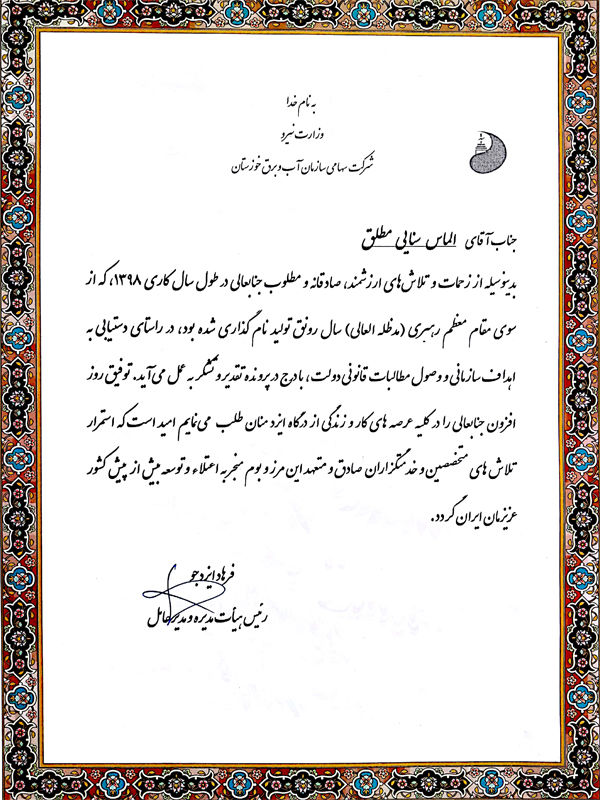 به نام خدا
وزارت نیرو
شرکت سهامی سازمان آب و برق خوزستان
جناب آقای الماس سنایی مطلق
بدینوسیله از زحمات و تلاش‌های ارزشمند، صادقانه و مطلوب جنابعالی در طول سال کاری ۱۳۹۸، که از
سوی مقام معظم رهبری (مدظله العالی) سال رونق تولید نام گذاری شده بود، در راستای دستیابی به
اهداف سازمانی و وصول مطالبات قانونی دولت، با درج در پرونده تقدیر و تشکر به عمل می آید. توفیق روز
افزون جنابعالی را در کلیه عرصه های کار و زندگی از درگاه ایزد منان طلب می نمایم امید است که استمرار
تلاش های متخصصین و خدمتگزاران صادق و متعهد این مرز و بوم منجر به اعتلاء و توسعه بیش از پیش کشور
عزیزمان ایران گردد.
فرهاد ایزدجو
رئیس هیأت مدیره و مدیرعامل